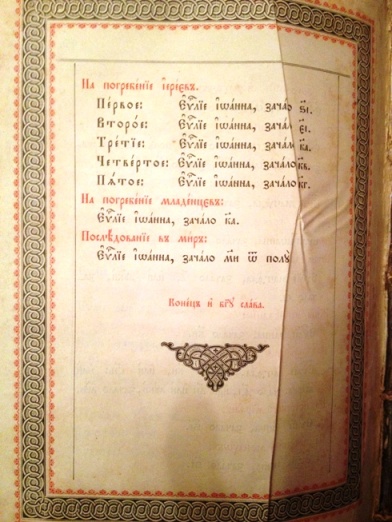 На погребе́нїе і҆ере́євъ.
Пе́рвое: Є҆ѵⷢ҇лїе і҆ѡа́нна, зача́ло ѕ҃і.
Второ́е: Є҆ѵⷢ҇лїе і҆ѡа́нна, зача́ло є҃і.
Тре́тїе: Є҆ѵⷢ҇лїе і҆ѡа́нна, зача́ло к҃а.
Четве́ртое: Є҆ѵⷢ҇лїе і҆ѡа́нна, зача́ло к҃в.
Пѧ́тое: Є҆ѵⷢ҇лїе і҆ѡа́нна, зача́ло к҃г.
На погребе́нїе младе́нцєвъ:
Є҆ѵⷢ҇лїе і҆ѡа́нна, зача́ло к҃а.
Послѣ́дованїе въ ми́ръ:
Є҆ѵⷢ҇лїе і҆ѡа́нна, зача́ло м҃и ѿ полꙋ̀
Коне́цъ и҆ бг҃ꙋ сла́ва.